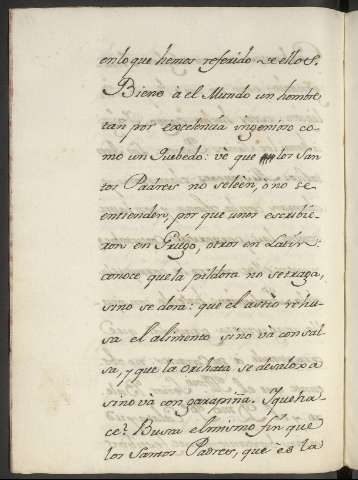 en lo que hemos referido de ellos.
Biene à el Mundo un hombre
tan por excelencia ingenioso co-
mo un Quebedo: vè que los San-
tos Padres no seleèn, ò no se
entienden, por que unos escribie-
ron en Griego, otros en Latin:
conoce que la pildora no setraga,
sino se dora: que el astio rehu-
sa el alimento sino và con sal-
sa, y que la orchata se desaloxa
sino và con garapiña. Y que ha-
ce? Busca el mismo fin que
los Santos Padres, que es la